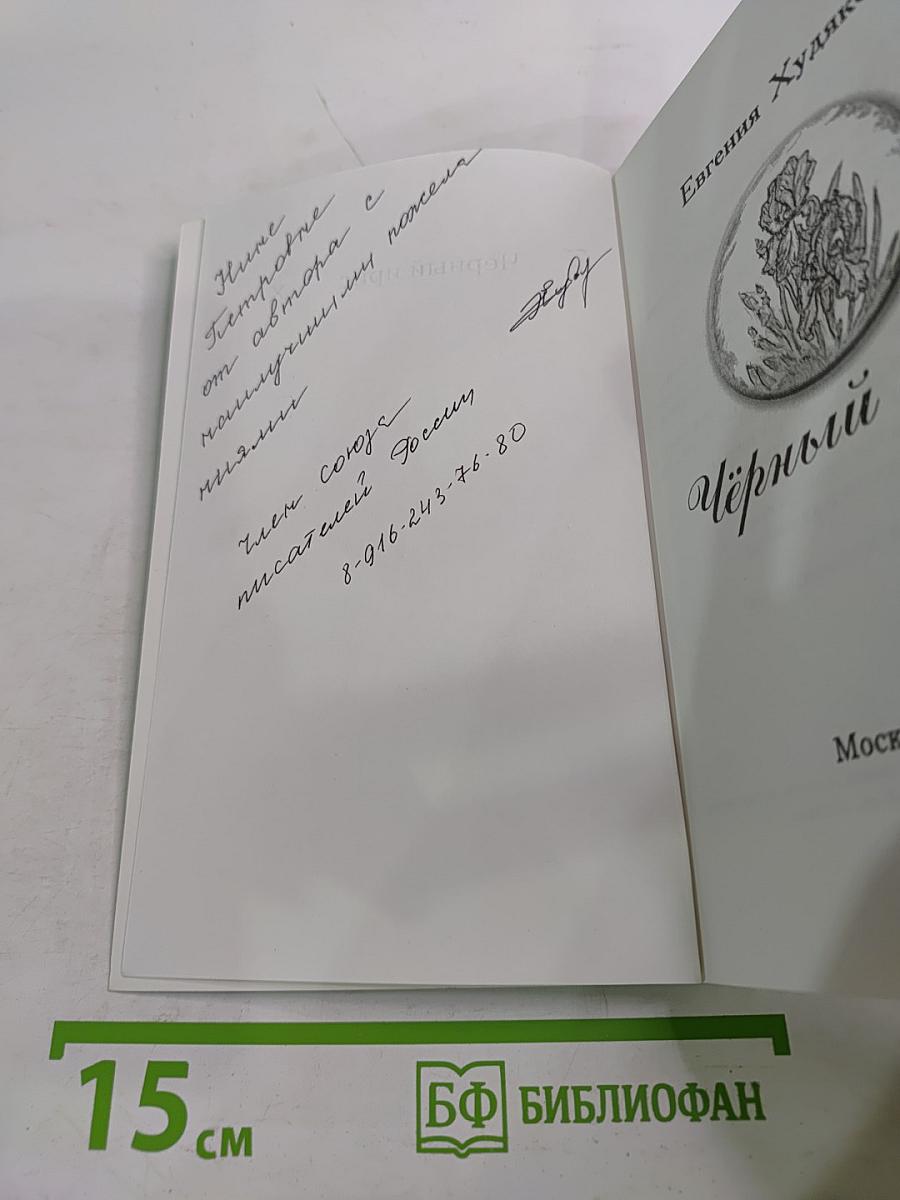 Нине
Петровне
от автора с
наилучшими пожела
ниями
член союза
писателей России
8-916-243-76-80
Евгения Худяко
Чёрный
Моск
15 см
БФ БИБЛИОФАН